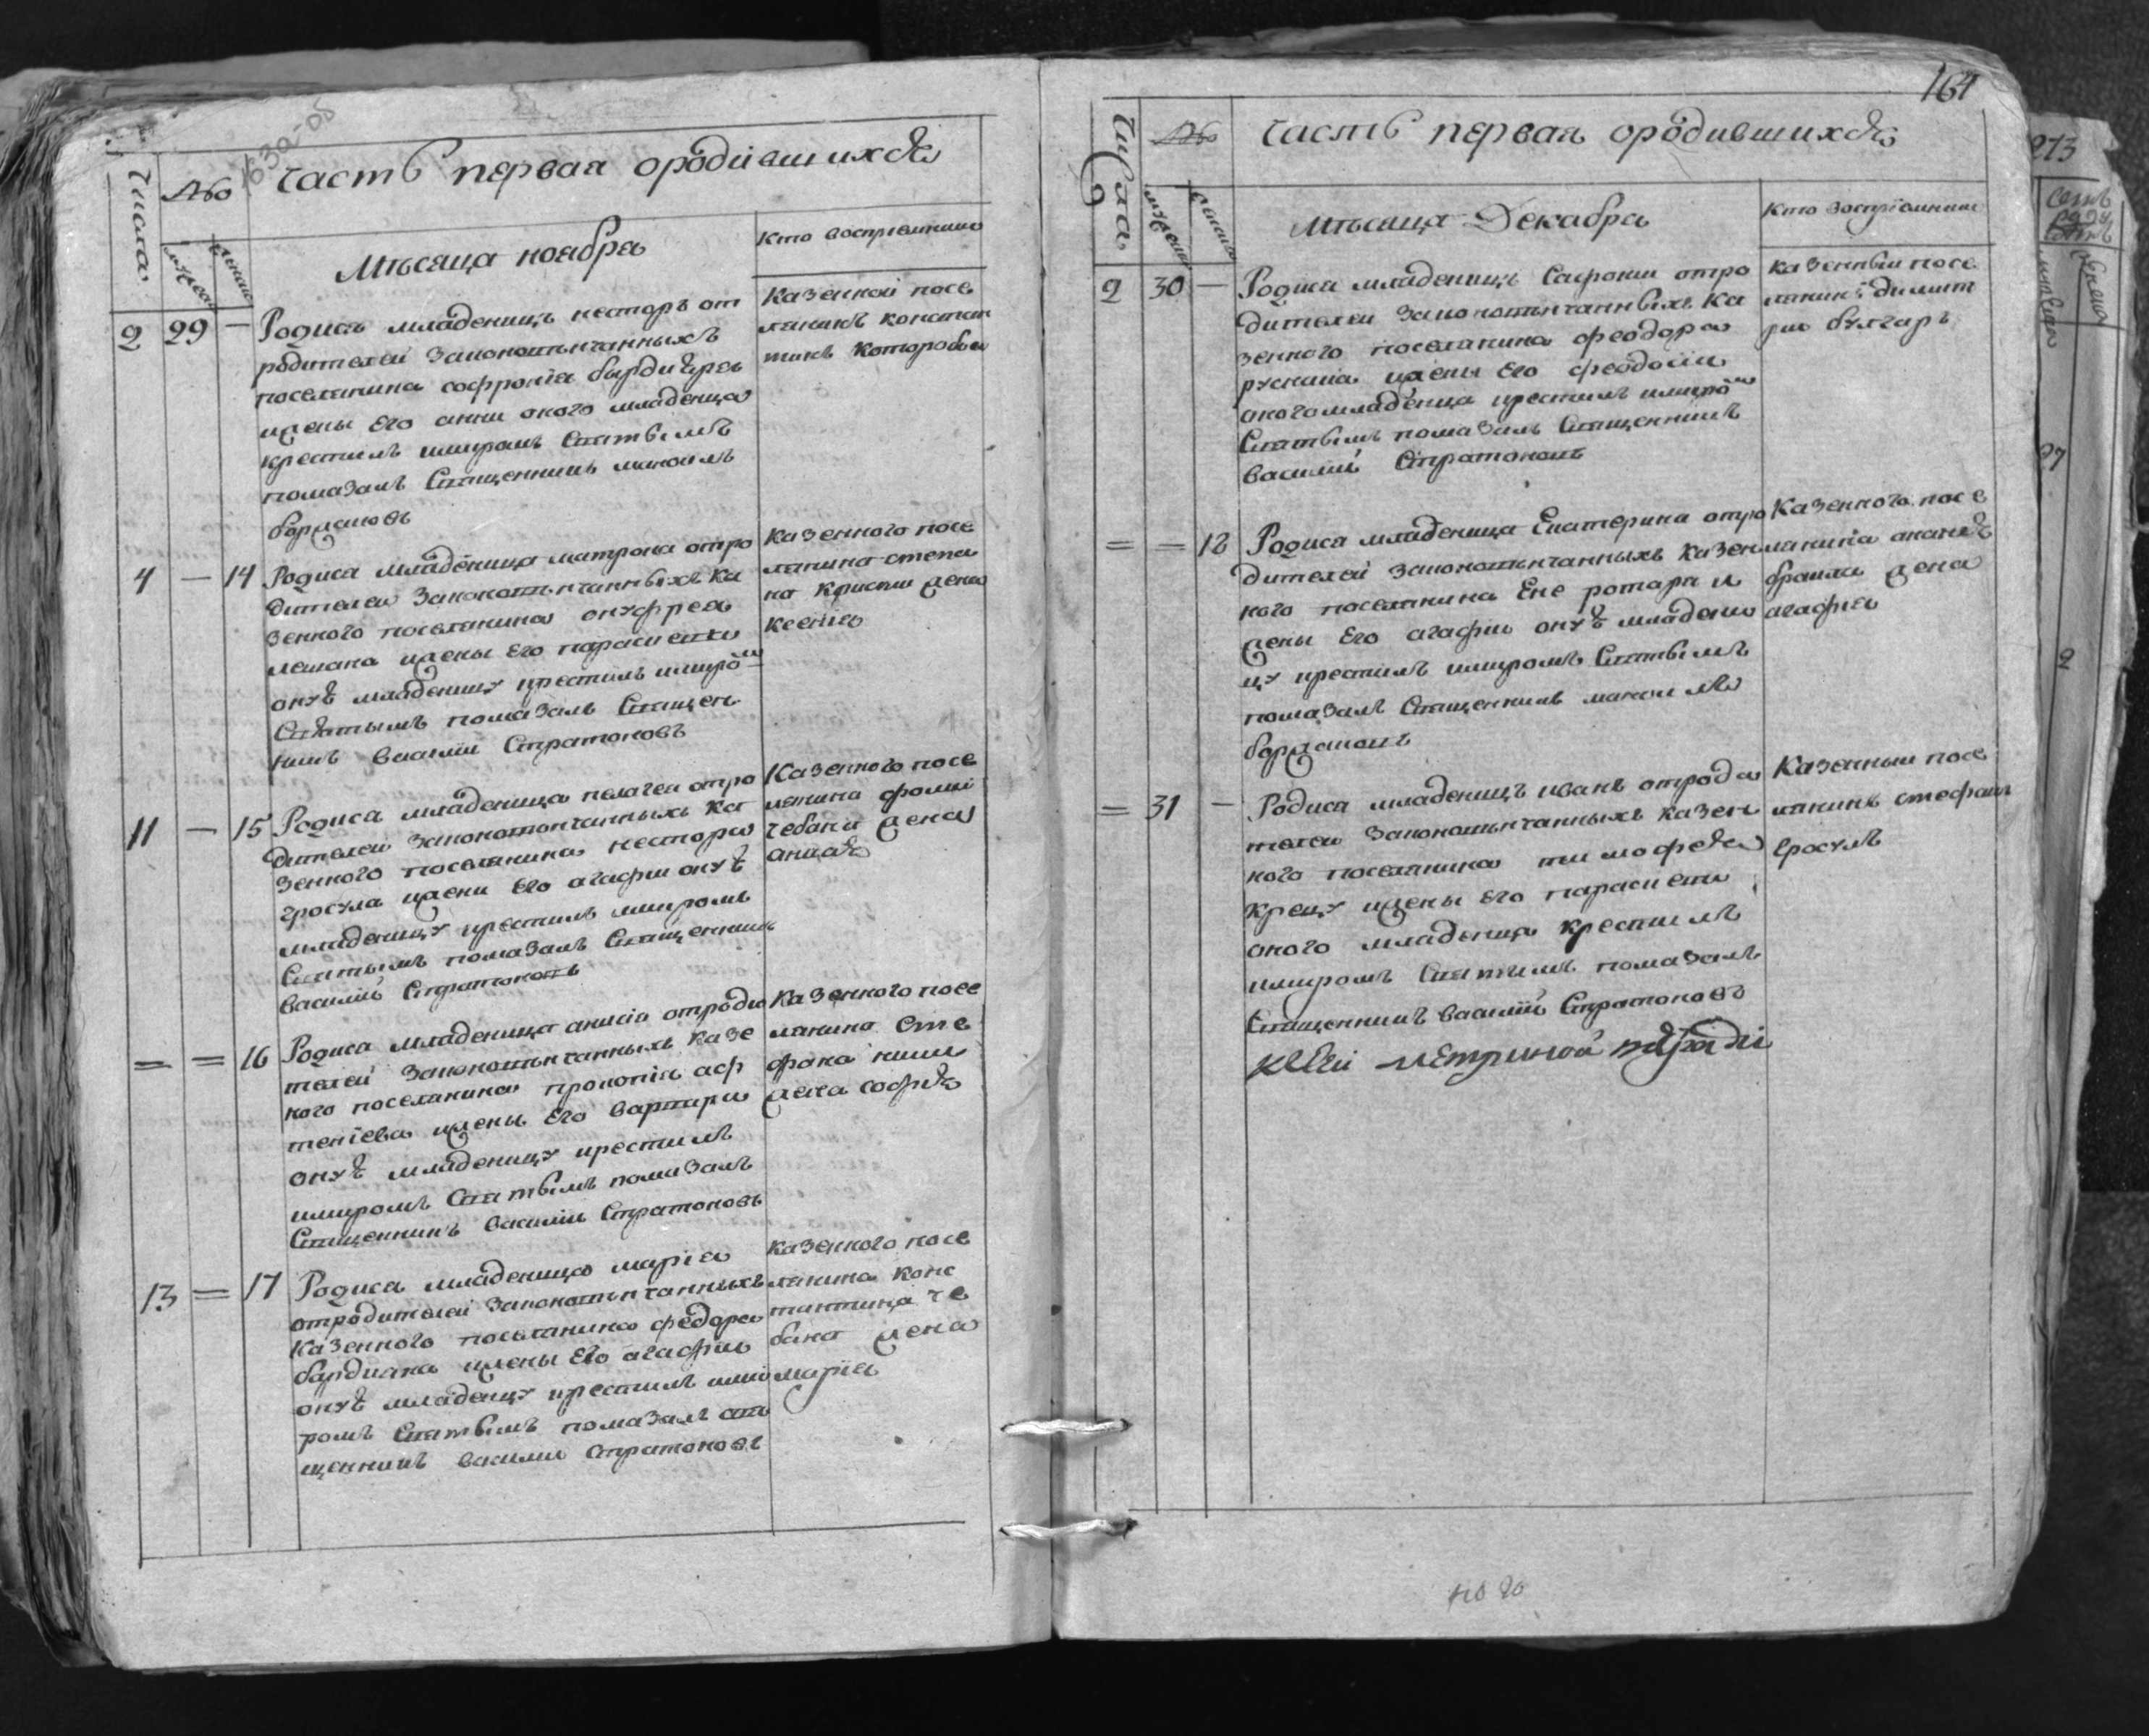 Часть первая ородившихся
Числа
№
мужеска
женска
Месяца ноября
кто восприемники
2 29 — Родися младенецъ несторъ от
родителей законовѣнчанныхъ
поселянина софронія бардиера
ижены его анни оного младенца
крестилъ имиромъ Святымъ
помазалъ Священникъ маноилъ
боржановъ
казенной посе
лянинъ констан
тинъ
4 — 14 Родися младеница матрона отро
дителей законовѣнчанныхъ ка
зенного поселянина онуфрея
лешана ижены его параскеви
онуѣ младеницу крестилъ имиро
Святымъ помазалъ Священ
никъ василій Стратоновъ
казенного посе
лянина степа
на кристи жена
ксенія
11 — 15 Родися младеница пелагея отро
дителей законовѣнчанныхъ ка
зенного поселянина нестора
гросула ижени его агафіи онуѣ
младеницу крестилъ имиромъ
Святымъ помазалъ Священникъ
василій Стратоновъ
Казенного посе
лянина фомы
чебана жена
анися
= = 16 Родися младеница анисія отроди
телей законовѣнчанныхъ казе
ного поселянина прокопія арф
теніева ижены его варвари
онуѣ младеницу крестилъ
имиромъ Святымъ помазалъ
Священникъ василій Стратоновъ
казенного посе
лянина сте
фана
жена софія
13 = 17 Родися младеница марія
отродителей законовѣнчанныхъ
казенного поселянина федора
бардиана ижены его агафіи
онуѣ младеницу крестилъ ими
ромъ Святымъ помазалъ свя
щенникъ василіи Стратоновъ
казенного посе
лянина конс
тантина че
бана жена
марія
164
Числа
№
мужеска
женска
часть первая ородившихся
мѣсяца Декабря
кто восприемники
2 30 — Родися младенецъ Сафони отро
дителей законовѣнчанныхъ ка
зенного поселянина феодора
руснака ижены его феодосіи
оного младенца крестилъ имиро
Святымъ помазалъ Священникъ
василій Стратоновъ
казенный посе
лянинъ димит
рій булгаръ
= = 18 Родися младеница Екатерина отро
дителей законовѣнчанныхъ казен
ного поселянина Ене ротаря и
жены его агафіи онуѣ младени
цу крестилъ имиромъ Святымъ
помазалъ Священникъ маноилъ
боржановъ
казенного посе
лянина
жена
агафія
= 31 — Родися младенецъ иванъ отроди
телей законовѣнчанныхъ казен
ного поселянина тимофея
крецу ижены его параскеви
оного младенца крестилъ
имиромъ Святымъ помазалъ
Священникъ василій Стратоновъ
Казенный посе
лянинъ стефанъ
гросулъ
метриной тетради